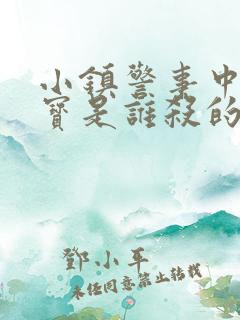 小鎮警事中
寶是誰殺的
鄧小平
未经同意禁止转载